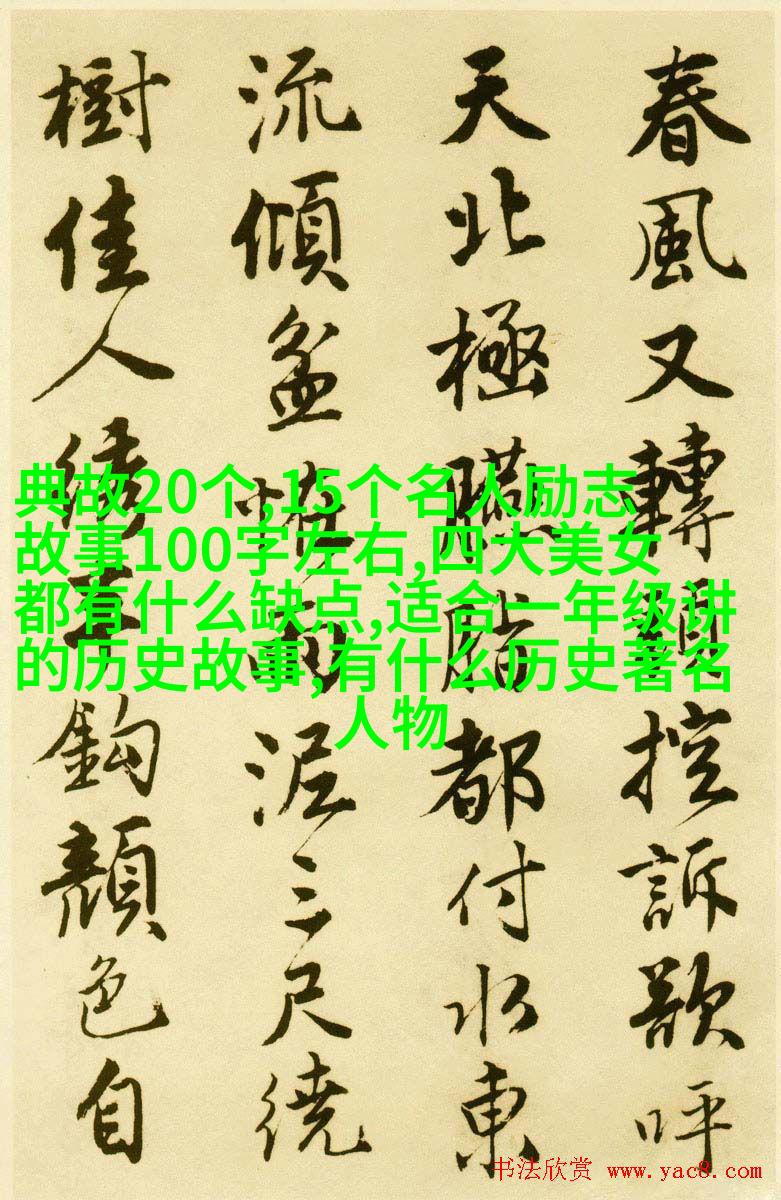 春風又轉控訴歌呼
天北極臙脂都付水東
流傾盆泥三尺繞
樹佳人鈎顔色自
典故20个,15个名人励志
故事100字左右,四大美女
都有什么缺点,适合一年级讲
的历史故事,有什么历史著名
人物
书法欣赏 www.yac8.com